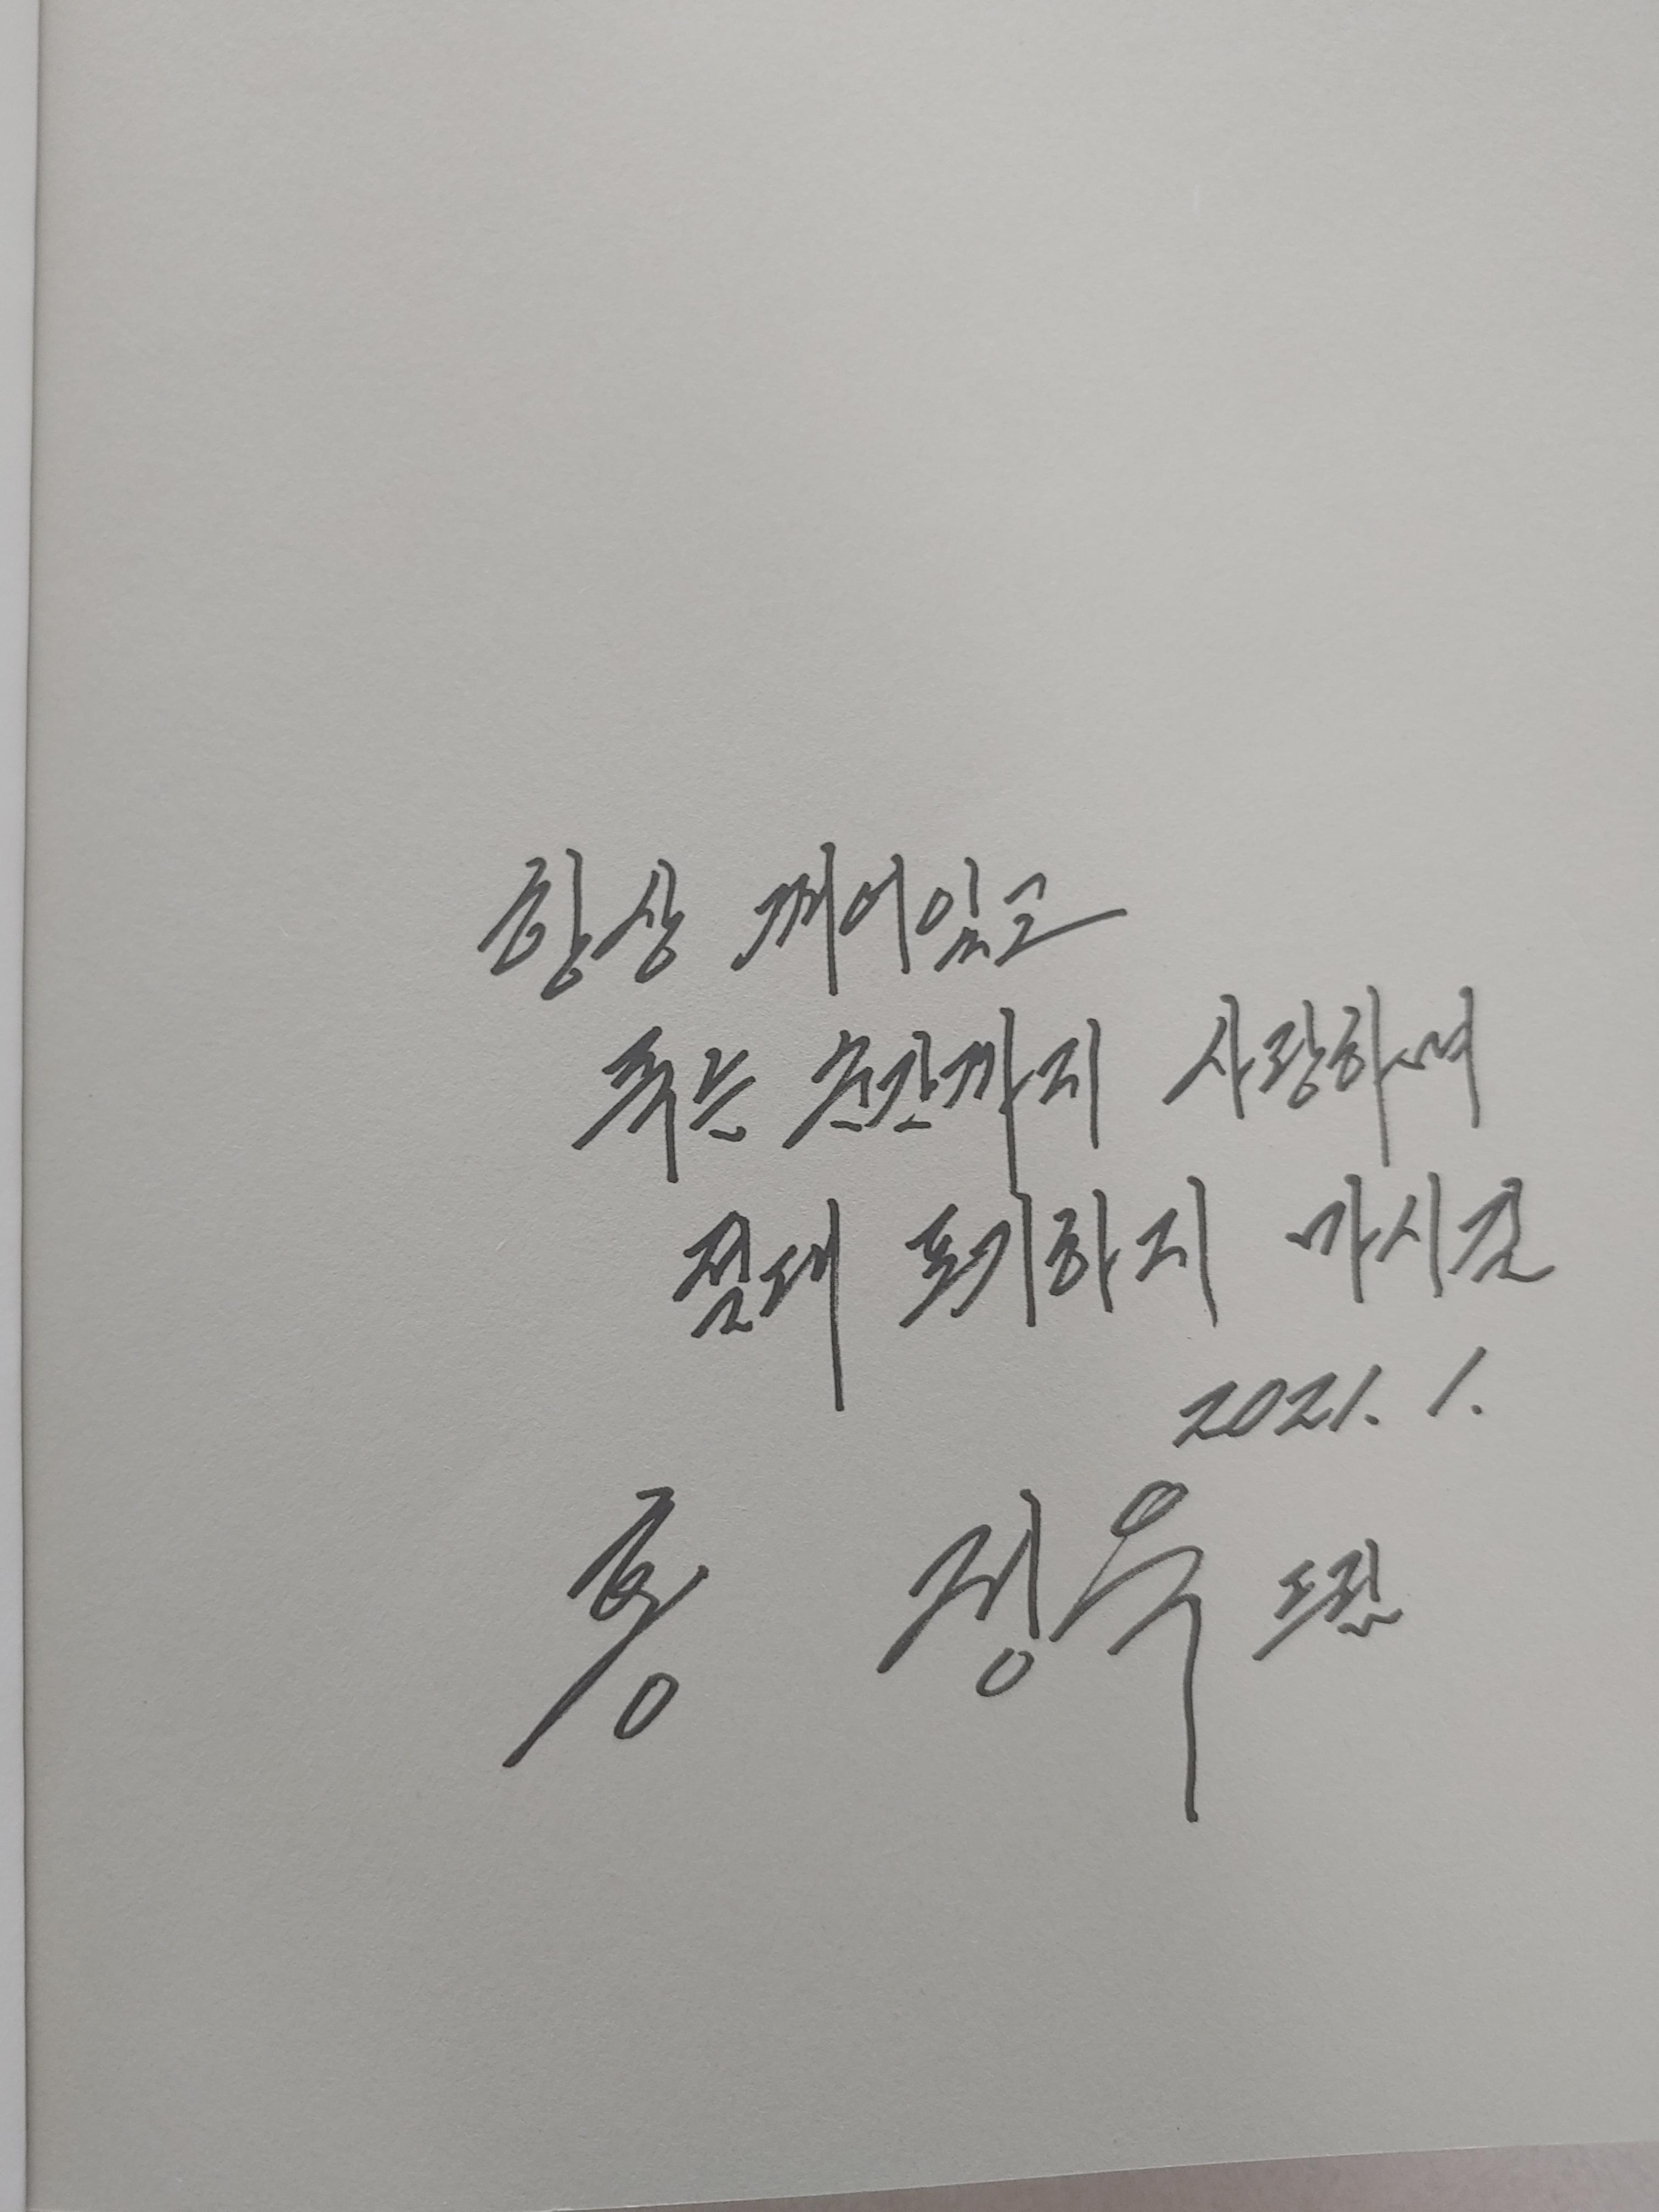 항상 깨어있고
죽는 순간까지 사랑하며
절대 포기하지 마시길
2021. 1.
홍 정욱 드림